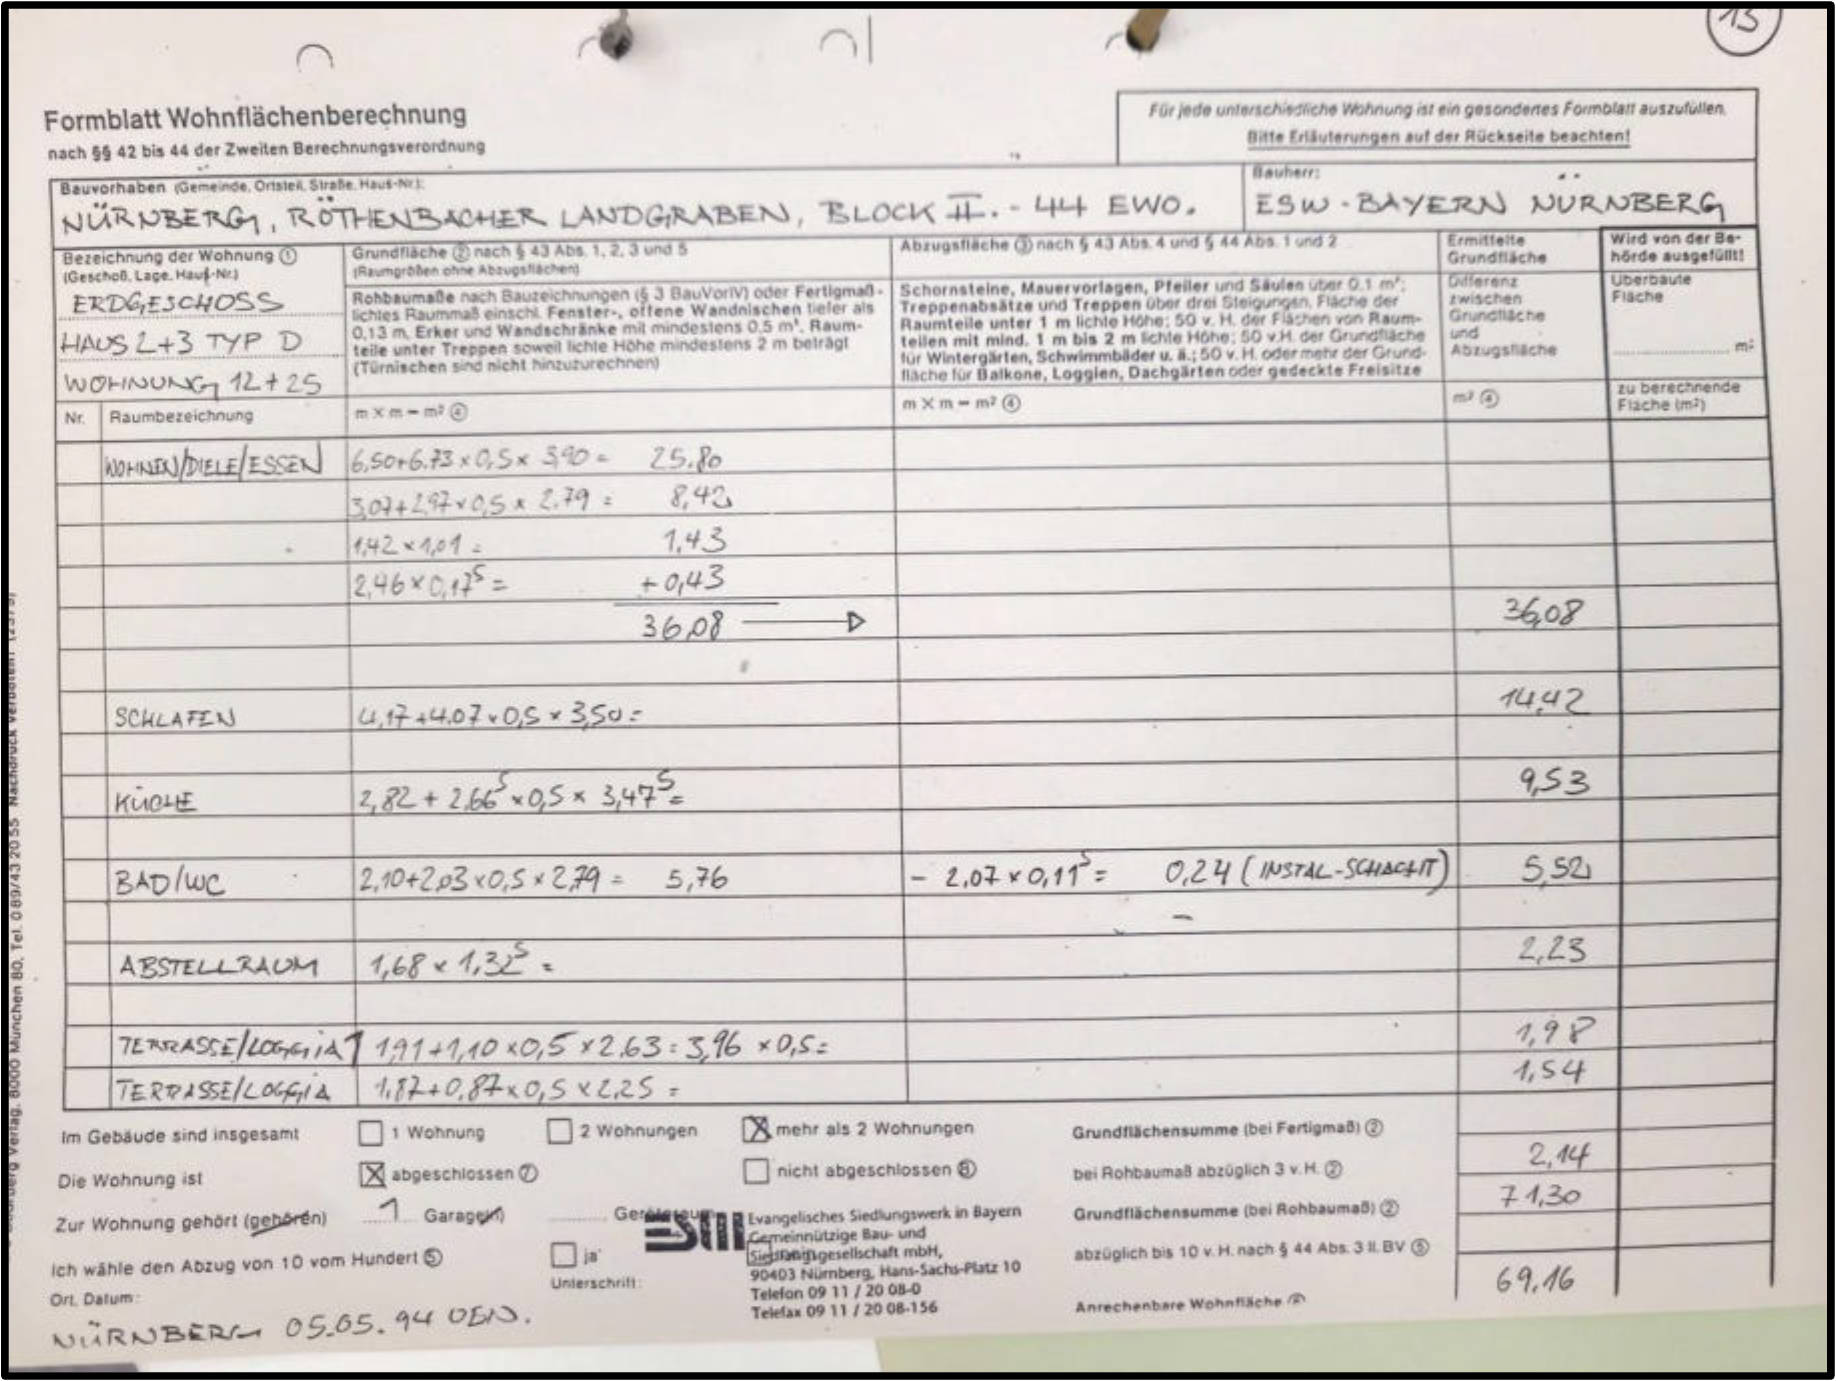 13
Formblatt Wohnflächenberechnung
nach §§ 42 bis 44 der Zweiten Berechnungsverordnung
Für jede unterschiedliche Wohnung ist ein gesondertes Formblatt auszufüllen.
Bitte Erläuterungen auf der Rückseite beachten!
Bauvorhaben (Gemeinde, Ortsteil, Straße, Haus-Nr.):
NÜRNBERG, RÖTHENBACHER LANDGRABEN, BLOCK II. - 44 EWO.
Bauherr:
ESW-BAYERN NÜRNBERG
Bezeichnung der Wohnung ①
(Geschoß, Lage, Haus-Nr.)
ERDGESCHOSS
HAUS 2+3 TYP D
WOHNUNG 12+25
Grundfläche ② nach § 43 Abs. 1, 2, 3 und 5
(Raumgrößen ohne Abzugsflächen)
Rohbaumaße nach Bauzeichnungen (§ 3 BauVorlV) oder Fertigmaß -
lichtes Raummaß einschl. Fenster-, offene Wandnischen tiefer als
0,13 m, Erker und Wandschränke mit mindestens 0,5 m², Raum-
teile unter Treppen soweit lichte Höhe mindestens 2 m beträgt
(Türnischen sind nicht hinzuzurechnen)
Abzugsfläche ③ nach § 43 Abs. 4 und § 44 Abs. 1 und 2
Schornsteine, Mauervorlagen, Pfeiler und Säulen über 0,1 m²;
Treppenabsätze und Treppen über drei Steigungen, Fläche der
Raumteile unter 1 m lichte Höhe; 50 v. H. der Flächen von Raum-
teilen mit mind. 1 m bis 2 m lichte Höhe; 50 v.H. der Grundfläche
für Wintergärten, Schwimmbäder u. ä.; 50 v. H. oder mehr der Grund-
fläche für Balkone, Loggien, Dachgärten oder gedeckte Freisitze
Ermittelte
Grundfläche
Differenz
zwischen
Grundfläche
und
Abzugsfläche
Wird von der Be-
hörde ausgefüllt!
Überbaute
Fläche
m²
zu berechnende
Fläche (m²)
Nr. Raumbezeichnung m × m = m² ④ m × m = m² ④ m² ④
WOHNEN/DIELE/ESSEN 6,50+6.73 × 0,5 × 3,90 = 25.80
3,07+2,97 × 0,5 × 2.79 = 8,42
1,42 × 1,01 = 1,43
2,46 × 0,17⁵ = + 0,43
36,08 36,08
SCHLAFEN 4,17+4.07 × 0,5 × 3,50 = 14,42
KÜCHE 2,82 + 2,66⁵ × 0,5 × 3,47⁵ = 9,53
BAD/WC 2,10+2,03 × 0,5 × 2,79 = 5,76 - 2,07 × 0,11⁵ = 0,24 (INSTAL-SCHACHT) 5,52
ABSTELLRAUM 1,68 × 1,32⁵ = 2,23
TERRASSE/LOGGIA 1,91+1,10 × 0,5 × 2,63 = 3,96 × 0,5 = 1,98
TERRASSE/LOGGIA 1,87+0,87 × 0,5 × 2,25 = 1,54
Im Gebäude sind insgesamt 1 Wohnung 2 Wohnungen mehr als 2 Wohnungen Grundflächensumme (bei Fertigmaß) ②
Die Wohnung ist abgeschlossen ⑦ nicht abgeschlossen ⑧ bei Rohbaumaß abzüglich 3 v. H. ② 2,14
Zur Wohnung gehört (gehören) 1 Garage(n) Grundflächensumme (bei Rohbaumaß) ② 71,30
ESW Evangelisches Siedlungswerk in Bayern
Gemeinnützige Bau- und
Siedlungsgesellschaft mbH,
90403 Nürnberg, Hans-Sachs-Platz 10
Telefon 09 11 / 20 08-0
Telefax 09 11 / 20 08-156
Ich wähle den Abzug von 10 vom Hundert ⑤ ja abzüglich bis 10 v. H. nach § 44 Abs. 3 II. BV ⑤
Unterschrift:
Anrechenbare Wohnfläche 69,16
Ort, Datum:
NÜRNBERG 05.05.94
Verlag, 8000 München 80, Tel. 089/43 20 55 Nachdruck verboten!